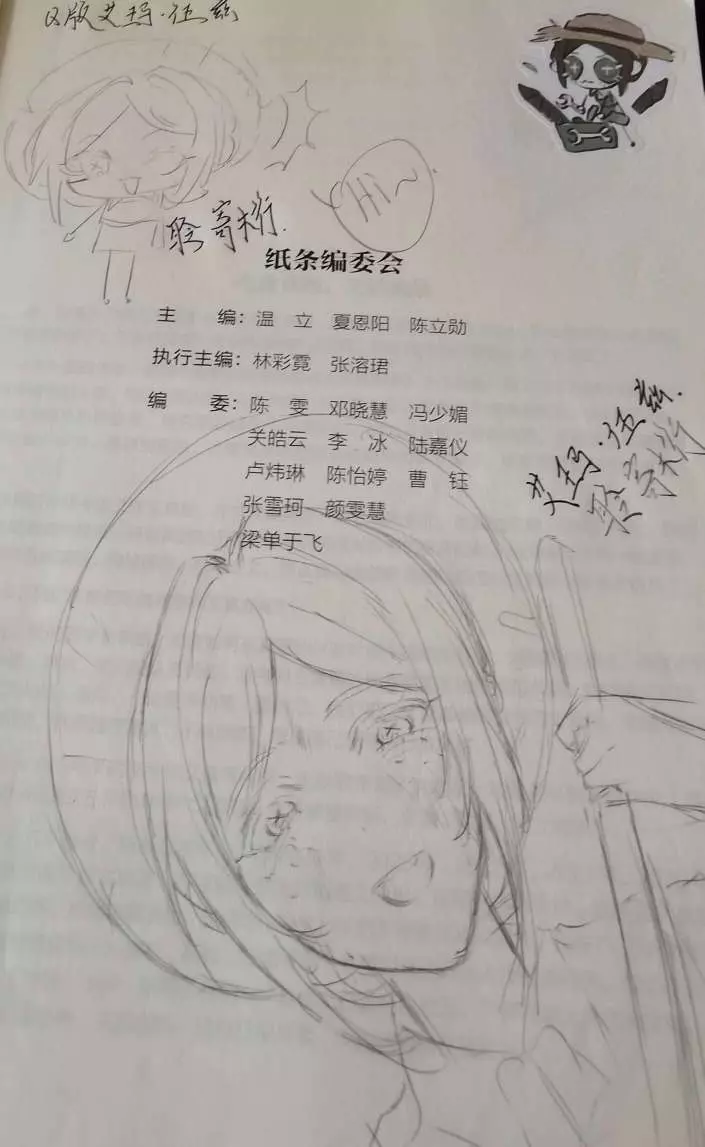 Q版艾玛·伍兹
Hi~
纸条编委会
主 编：温 立 夏恩阳 陈立勋
执行主编：林彩霓 张溶珺
编 委：陈 雯 邓晓慧 冯少媚
关皓云 李 冰 陆嘉仪
卢炜琳 陈怡婷 曹 钰
张雪珂 颜雯慧
梁单于飞
艾玛·伍兹